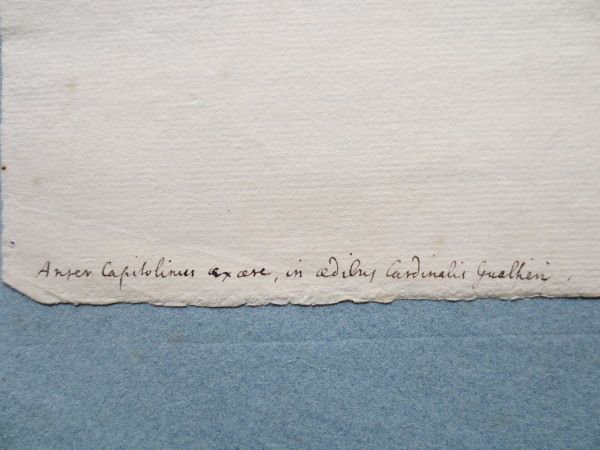 Anser Capitolinus ex ære, in ædibus Cardinalis Gualtieri.